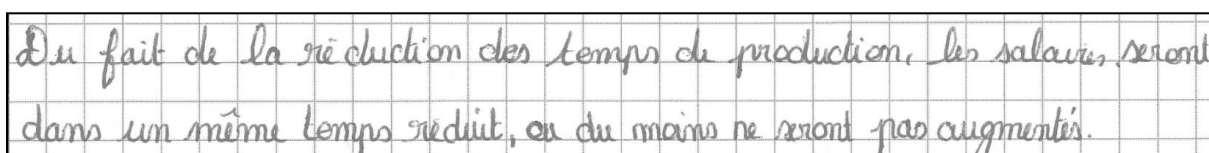 Du fait de la réduction des temps de production, les salaires, seront
dans un même temps réduit, ou du moins ne seront pas augmentés.